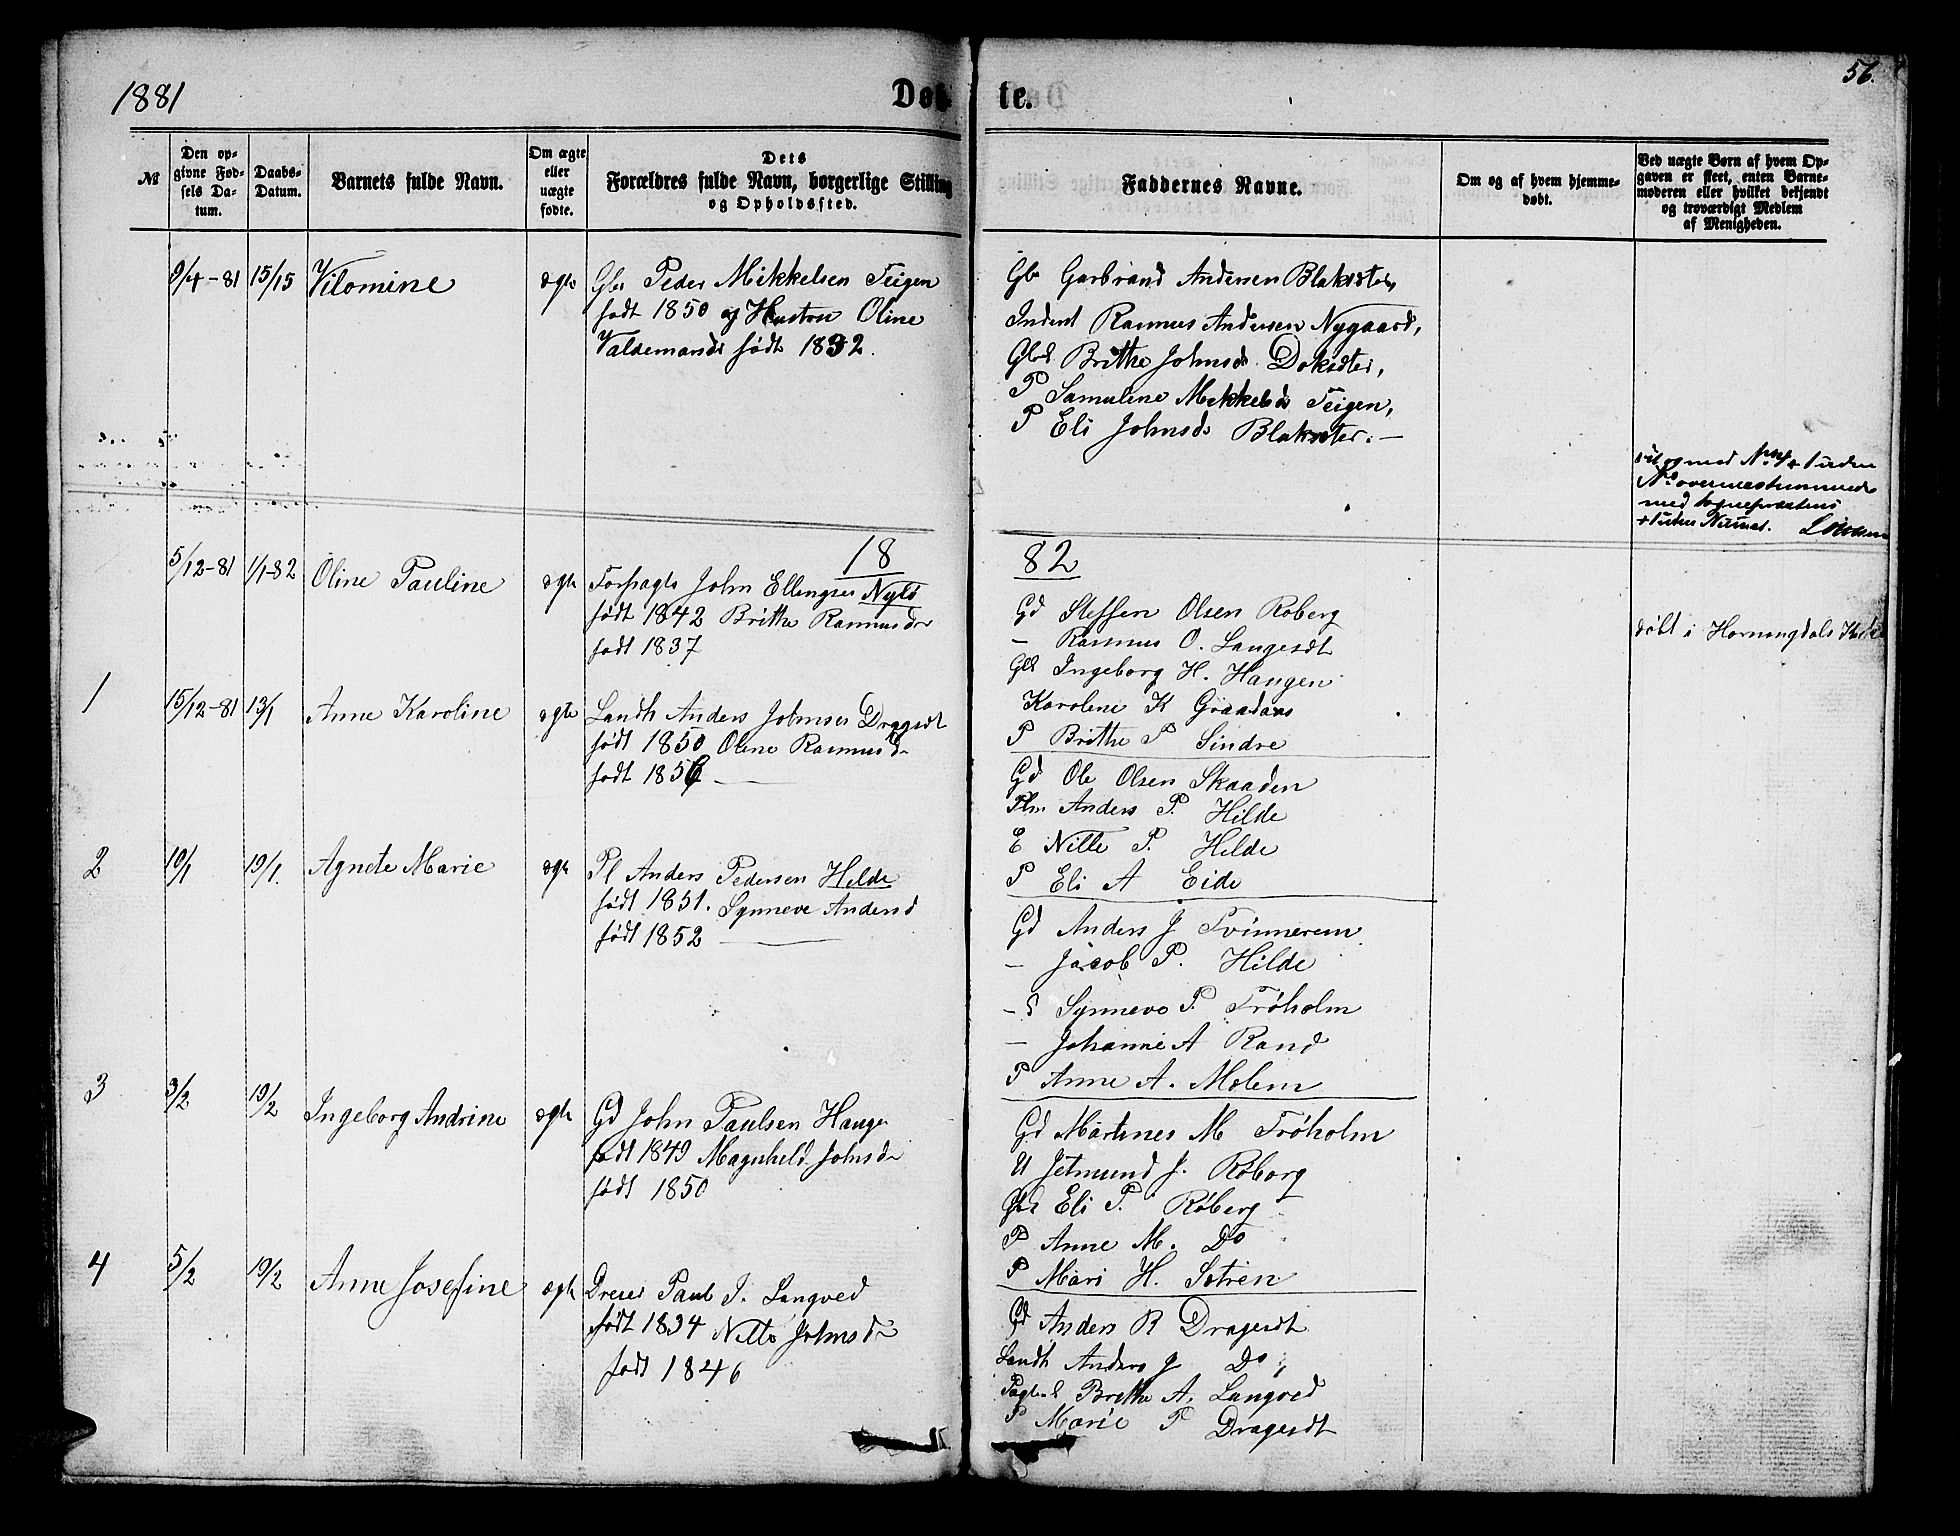 1881
Døbte.
56.
№
Den opgivne Fødsels Datum.
Daabs-Datum.
Barnets fulde Navn.
Om ægte eller uægte fødte.
Dets
Forældres fulde Navn, borgerlige Stilling
og Opholdssted.
Faddernes Navne.
Om og af hvem hjemmedøbt.
Ved uægte Børn af hvem Opgaven er skeet, enten Barnemoderen eller hvilket bekjendt og troværdigt Medlem af Menigheden.
9/4-81 15/15 Vilomine ægte Gbr Peder Mikkelsen Teigen
født 1850 og Hustru Oline
Valdemarsd født 1832.
Gbr Garbrand Andersen Blakseter,
Inderst Rasmus Andersen Nygaard,
Gbrk Brithe Johnsd. Dokseter,
P Samuline Mikkelsd Teigen,
P Eli Johnsd Blakseter.—
1882
5/12-81 1/1-82 Oline Pauline ægte Forpagter John Ellingsen Nylø
født 1842 Brithe Rasmusdr
født 1837
Gd Steffen Olsen Røberg
— Rasmus O. Langesdt
Gk Ingeborg H. Haugen
Karoline K Graadaas
P Brithe P Sindre
døbt i Hornengdals Kirke
1 15/12-81 13/1 Anne Karoline ægte Landh Anders Johnsen Dragesdt
født 1850 Oline Rasmusdr
født 1856 —
Gd Ole Olsen Skaaden
Plm Anders P. Hilde
E Nille P. Hilde
P Eli A Eide
2 10/1 19/1. Agnete Marie ægte Pl Anders Pedersen Hilde
født 1851. Synneve Andersd
født 1852 —
Gd Anders J Tvinnerem
— Jacob P. Hilde
— Synneve P. Frøholm
— Johanne A Rand
P Anne A. Molem
3 3/2 19/2 Ingeborg Andrine ægte Gd John Paulsen Hauge
født 1849 Magnhild Johnsdr
født 1850
Gd Martines M Frøholm
U Jetmund J. Røberg
Eli P. Røberg
P Anne M. Do
P Mari H. Sætren
4 5/2 19/2 Anne Josefine ægte Dreier Paul J. Langved
født 1834 Nille Johnsdr
født 1846
Gd Anders R Dragesdt
Landh Anders J Do,
Brithe A. Langved
P Marie P Dragesdt